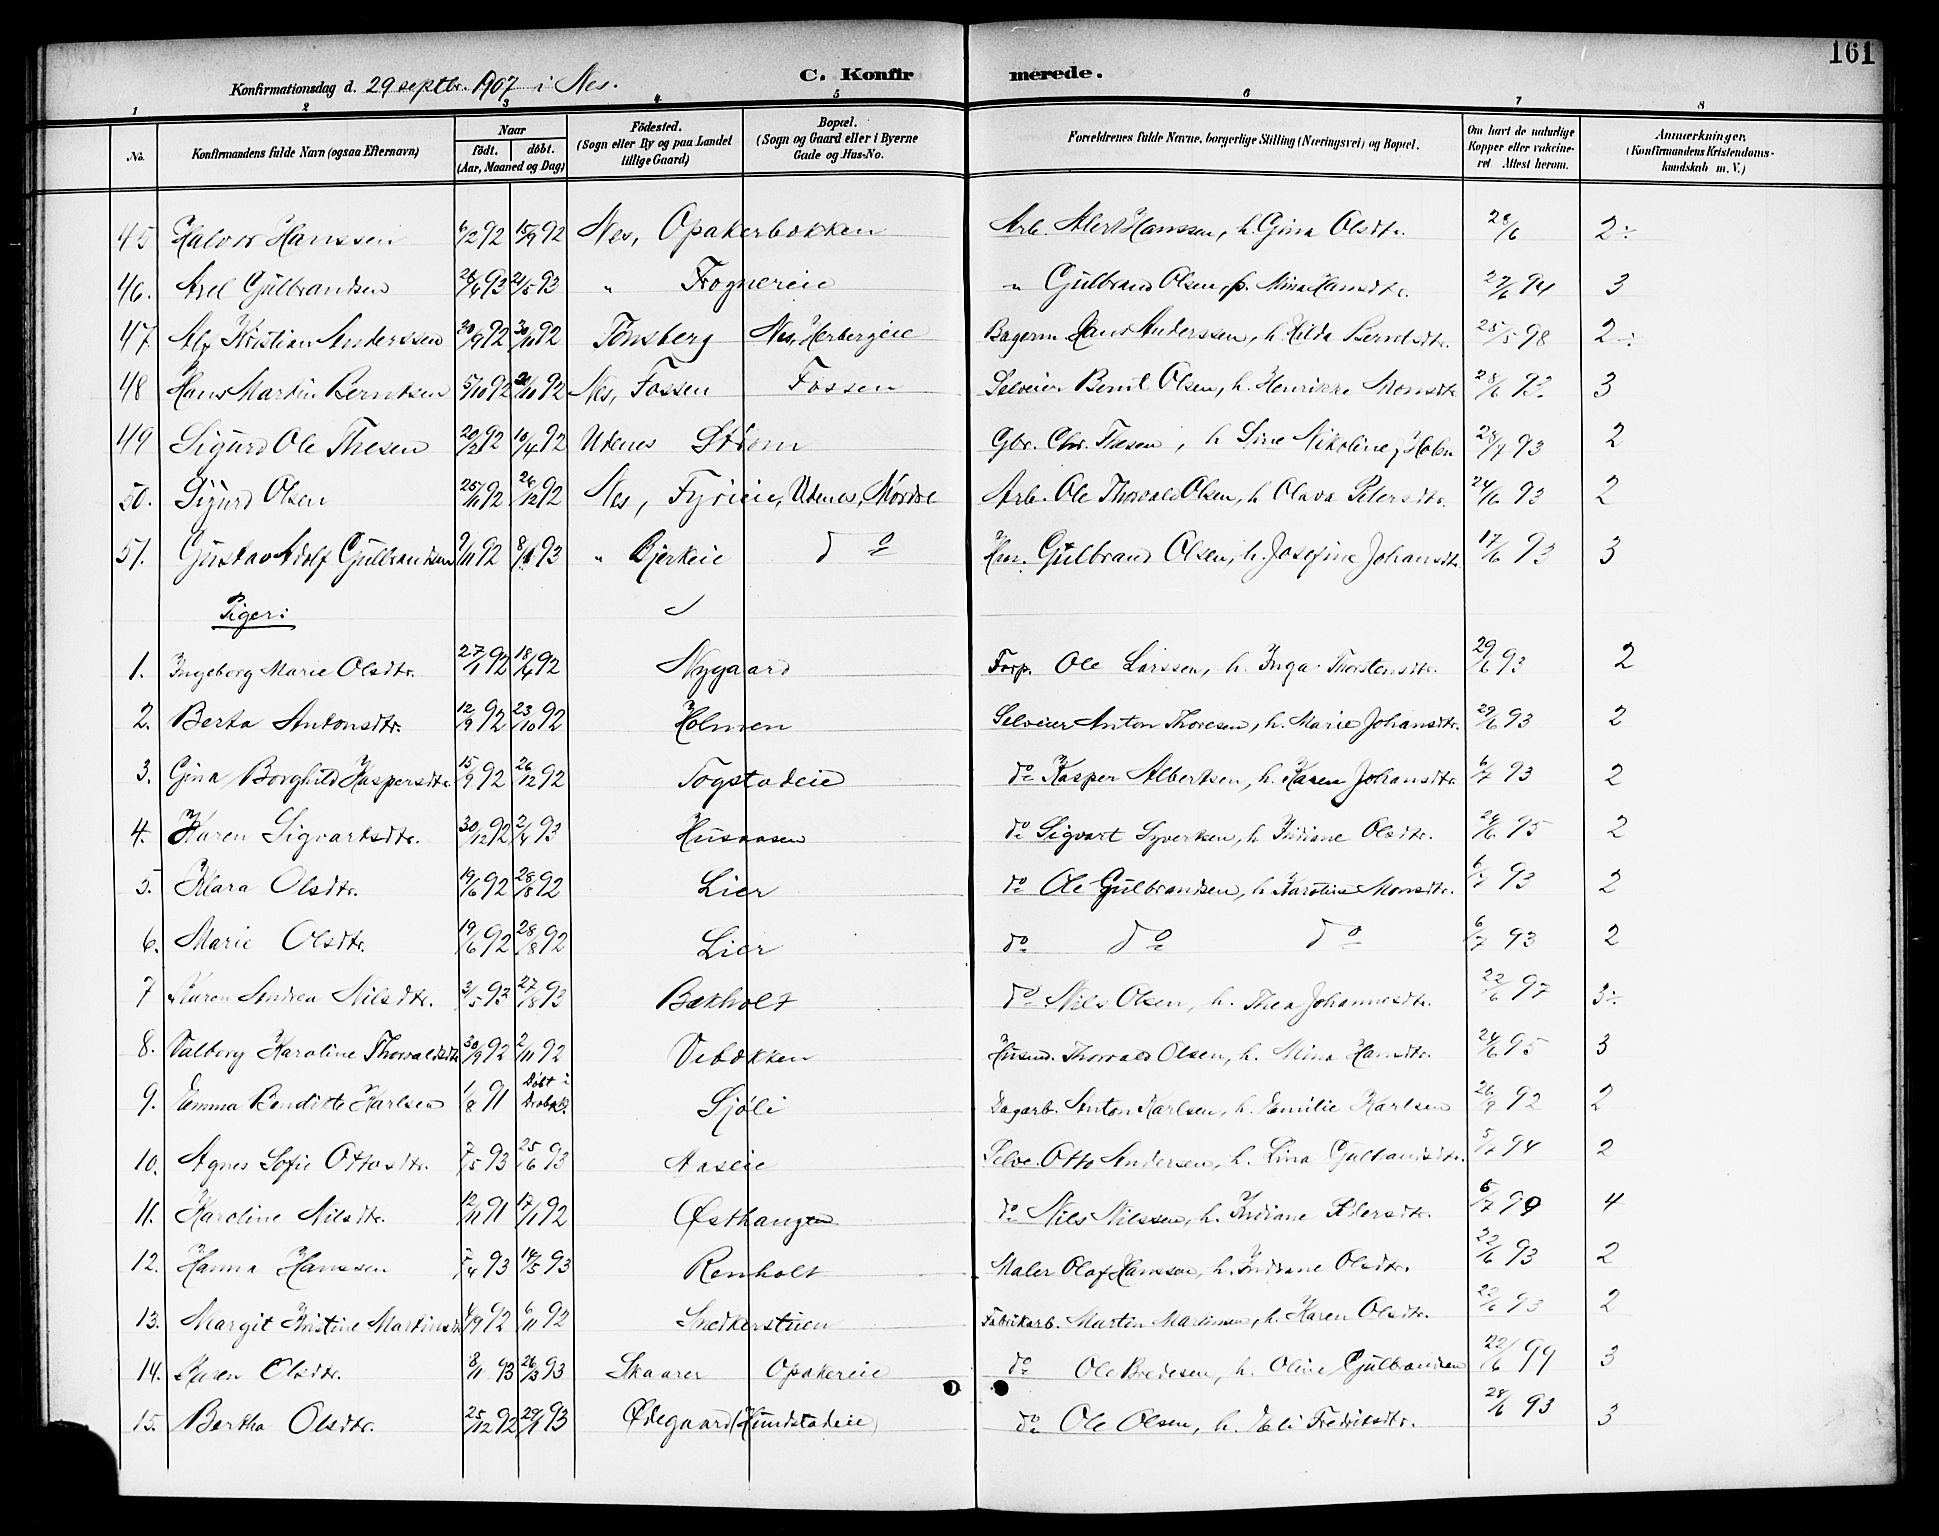 161
Konfirmationsdag d. 29 septbr. 1907 i Nes. C. Konfirmerede.
1 2 3 4 5 6 7 8
No. Konfirmandens fulde Navn (ogsaa Efternavn) Naar født. døbt. (Aar, Maaned og Dag) Födested. (Sogn eller By og paa Landet tillige Gaard) Bopæl. (Sogn og Gaard eller i Byerne Gade og Hus-No. Forældrenes fulde Navne, borgerlige Stilling (Næringsvei) og Bopæl. Om havt de naturlige Kopper eller vakcineret Attest herom. Anmærkninger, (Konfirmandens Kristendomskundskab m. V.)
45 Halvor Hanssen 6/2 92 15/9 92 Nes, Opakerbækken Arb. Hanssen, h. Gina Olsdtr. 28/6 2÷
46. Axel Gulbrandsen 93 21/5 93 " Frognereie " Gulbrand Olsen, p. Mina Hansdtr. 27/6 94 3
47. Alf Kristian Anderssen 30/9 92 30/11 92 Tønsberg Nes, Herbergeie Bagerm. Hans Anderssen, h. Hilda Berntsdtr. 25/5 98 2÷
48 Hans Martin Berntsen 5/10 92 92 Nes, Fossen Fossen Selveier Bernt Olsen, h. Henrikke Monsdtr. 28/6 93. 3
49 Sigurd Ole Thesen 20/2 92 10/4 92 Udenes Strøm Gbr. Chr. Thesen, h. Sine Nikoline f. Holm 28/7 93 2
50. Sigurd Olsen 25/11 92 26/12 92 Nes, Fyrieie, Udenes, Mordre Arb. Ole Thorvald Olsen, h. Olava Petersdtr. 24/6 93 2
51. Gustav Adolf Gulbrandsen 9/11 92 8/1 93 " Bjerkeie do Hm. Gulbrand Olsen, h. Josefine Johansdtr. 17/6 93 3
Piger:
1. Ingeborg Marie Olsdtr. 27/1 92 18/4 92 Nygaard Forp. Ole Larssen, h. Inga Thorstensdtr. 29/6 93 2
2. Berta Antonsdtr. 12/9 92 23/10 92 Holmen Selveier Anton Thoresen, h. Marie Johansdtr. 29/6 93 2
3. Gina Borghild Kaspersdtr. 15/9 92 26/12 92 Togstadeie do Kasper Albertsen, h. Karen Johansdtr. 6/7 93 2
4. Karen Sigvartsdtr. 30/12 92 2/4 93 Husaasen do Sigvart Syvertsen, h. Indiane Olsdtr. 28/6 95 2
5. Klara Olsdtr. 19/6 92 28/8 92 Lier do Ole Gulbrandsen, h. Karoline Monsdtr. 6/7 93 2
6. Marie Olsdtr. 19/6 92 28/8 92 Lier do do do 6/7 93 2
7 Karen Andrea Nilsdtr. 3/5 93 27/8 93 Bækholt do Nils Olsen, h. Thea Johannesdtr. 22/6 97 3÷
8. Valborg Karoline Thorvaldsdtr 30/9 92 2/11 92 Vebækken Husmd. Thorvald Olsen, h. Mina Hansdtr. 24/6 95 3
9. Emma Bendikte Karlsen 1/8 91 Døbt i Drøbak. Sjøli Dagarb. Anton Karlsen, h. Emilie Karlsen 26/9 92 2
10. Agnes Sofie Ottosdtr. 7/5 93 25/6 93 Aaseie Selve. Otto Andersen, h. Lina Gulbrandsdtr. 5/7 94 2
11. Karoline Nilsdtr. 12/11 91 17/1 92 Østhangen do Nils Nilssen, h. Indiane Pedersdtr. 6/7 99 4
12. Hanna Hanssen 7/4 93 14/5 93 Renholt Maler Olaf Hanssen, h. Indiane Olsdtr. 22/6 93 2
13. Margit Kristine Martinsdtr 4/9 92 6/11 92 Snedkerstuen Fabrikarb. Martin Martinsen, h. Karen Olsdtr. 23/6 93 2
14. Karen Olsdtr. 8/1 93 26/3 93 Skaarer Opakereie do Ole Bredesen, h. Oline Gulbrandsen 22/6 99 3
15. Bertha Olsdtr. 25/12 92 29/1 93 Ødegaard (Hundstadeie) do Ole Olsen, h. Eli Fredriksdtr. 28/6 93 3